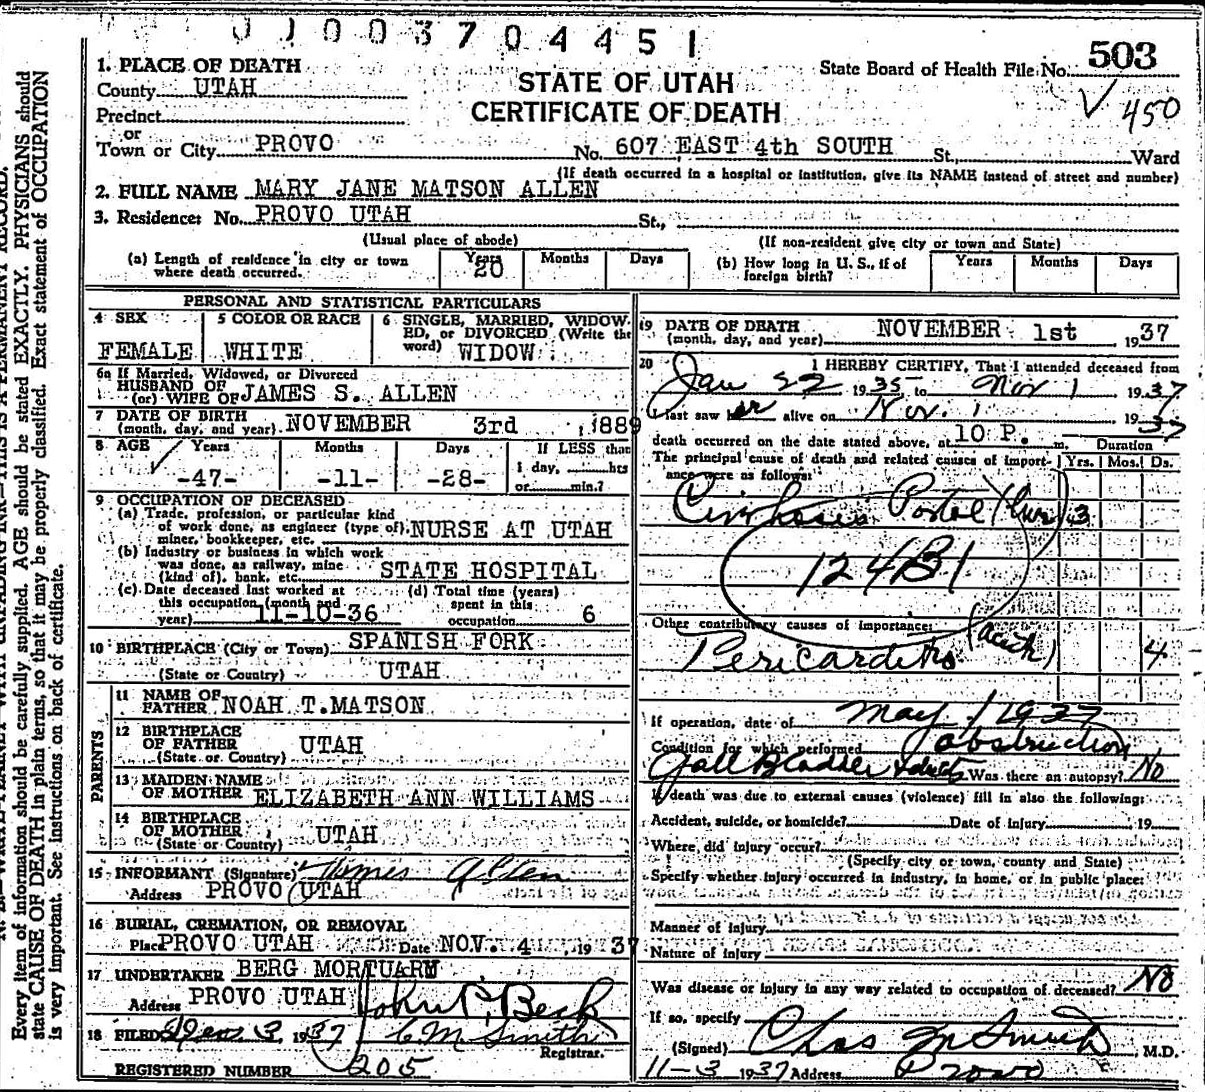 0 1 0 0 3 7 0 4 4 5 1
503
State Board of Health File No.
√ 450
STATE OF UTAH
CERTIFICATE OF DEATH
1. PLACE OF DEATH
County UTAH
Precinct
or
Town or City PROVO No. 607 EAST 4th SOUTH St., Ward
(If death occurred in a hospital or institution, give its NAME instead of street and number)
2. FULL NAME MARY JANE MATSON ALLEN
3. Residence: No. PROVO UTAH St.,
(Usual place of abode) (If non-resident give city or town and State)
(a) Length of residence in city or town where death occurred. Years 20 Months Days
(b) How long in U. S., if of foreign birth? Years Months Days
PERSONAL AND STATISTICAL PARTICULARS
4 SEX FEMALE
5 COLOR OR RACE WHITE
6 SINGLE, MARRIED, WIDOWED, or DIVORCED (Write the word) WIDOW
6a If Married, Widowed, or Divorced
HUSBAND OF
(or) WIFE OF JAMES S. ALLEN
7 DATE OF BIRTH
(month, day, and year) NOVEMBER 3rd , 1889
8 AGE Years Months Days If LESS than
-47- -11- -28- 1 day, hrs
or min.?
9 OCCUPATION OF DECEASED
(a) Trade, profession, or particular kind
of work done, as engineer (type of)
miner, bookkeeper, etc. NURSE AT UTAH
(b) Industry or business in which work
was done, as railway, mine
(kind of), bank, etc. STATE HOSPITAL
(c) Date deceased last worked at
this occupation (month and
year) 11-10-36
(d) Total time (years)
spent in this
occupation 6
10 BIRTHPLACE (City or Town) SPANISH FORK
(State or Country) UTAH
PARENTS
11 NAME OF
FATHER NOAH T. MATSON
12 BIRTHPLACE
OF FATHER UTAH
(State or Country)
13 MAIDEN NAME
OF MOTHER ELIZABETH ANN WILLIAMS
14 BIRTHPLACE
OF MOTHER UTAH
(State or Country)
15 INFORMANT (Signature)
Address PROVO UTAH
16 BURIAL, CREMATION, OR REMOVAL
Place PROVO UTAH Date NOV. 4 , 19 37
17 UNDERTAKER BERG MORTUARY
Address PROVO UTAH John P. Beck
18 FILED 3, 1937 C M Smith
Registrar.
REGISTERED NUMBER 205
19 DATE OF DEATH
(month, day, and year) NOVEMBER 1st , 19 37
20 I HEREBY CERTIFY, That I attended deceased from
Jan 22 1935 to Nov 1 1937
I last saw her alive on Nov. 1 1937
death occurred on the date stated above, at 10 P. m. Duration
The principal cause of death and related causes of importance were as follows: Yrs. Mos. Ds.
Cirrhosis Portal Liver 3
124B1
Other contributory causes of importance:
Pericarditis (acute) 4
If operation, date of May 1 1937
Condition for which performed obstruction
Gall Bladder & ducts Was there an autopsy? No
If death was due to external causes (violence) fill in also the following:
Accident, suicide, or homicide? Date of injury 19
Where did injury occur?
(Specify city or town, county and State)
Specify whether injury occurred in industry, in home, or in public place:
Manner of injury
Nature of injury
Was disease or injury in any way related to occupation of deceased? No
If so, specify
(Signed) Chas M Smith M.D.
11-3 1937 Address Provo
Every item of information should be carefully supplied. AGE should be stated EXACTLY. PHYSICIANS should
state CAUSE OF DEATH in plain terms, so that it may be properly classified. Exact statement of OCCUPATION
is very important. See instructions on back of certificate.